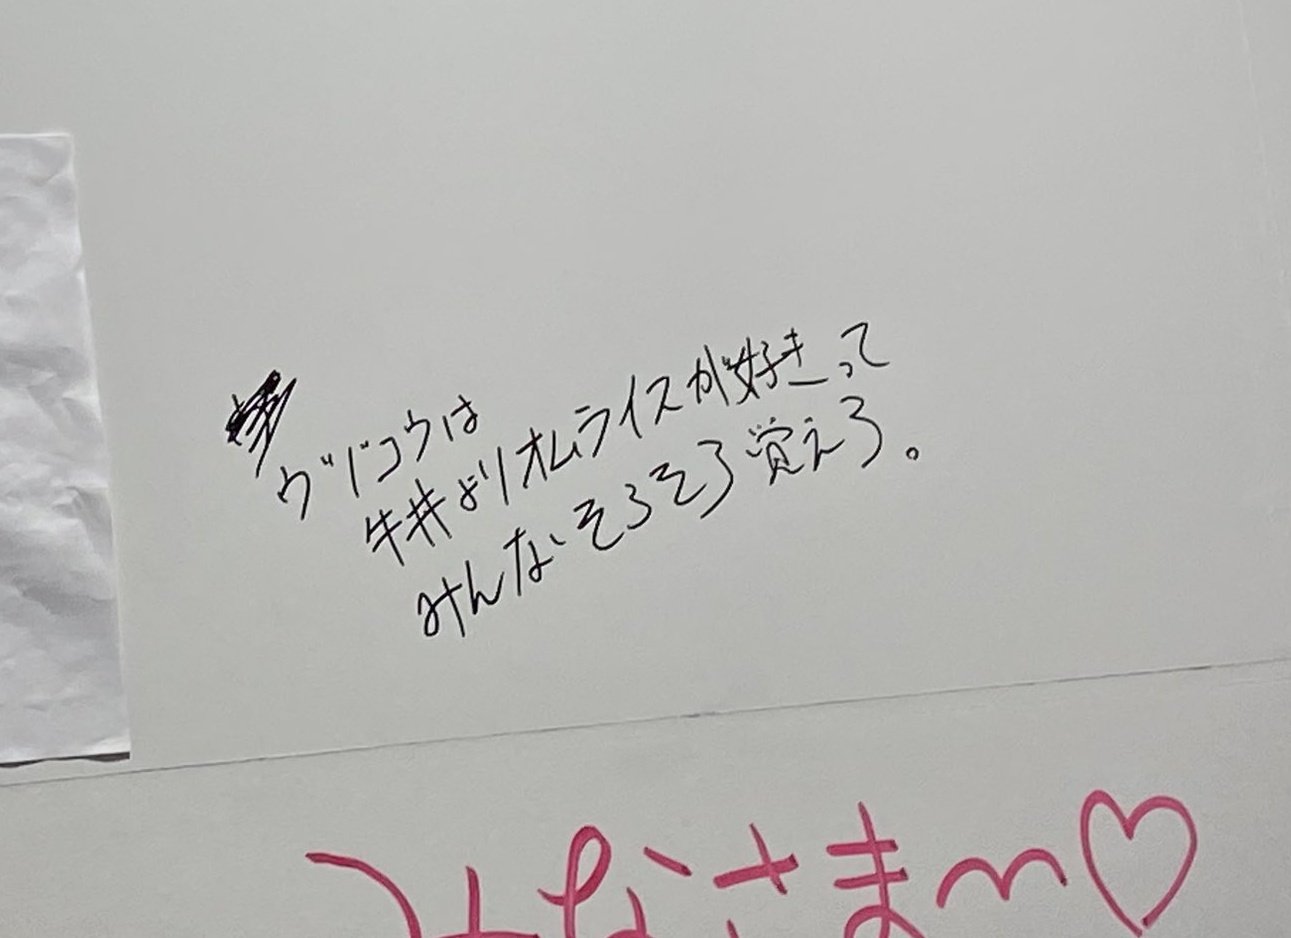 は
牛丼よりオムライスが好きって
みんなそろそろ覚えろ。
みなさま〜♡